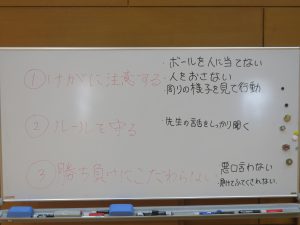 ・ボールを人に当てない
①けがに注意する・人をおさない
周りの様子を見て行動
②ルールを守る
・先生の話をしっかり聞く
③勝ち負けにこだわらない
悪口言わない
・負けてふてくされない